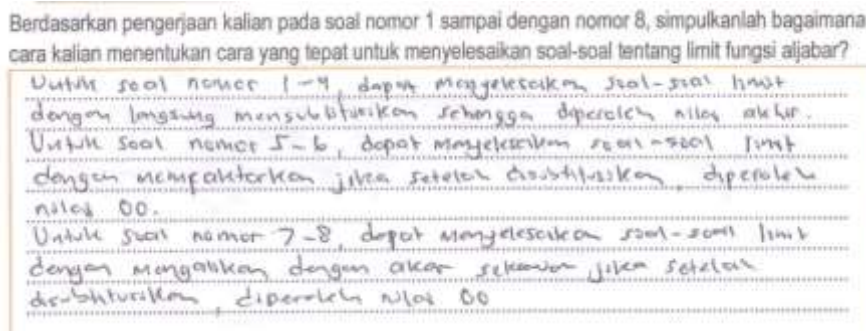 Berdasarkan pengerjaan kalian pada soal nomor 1 sampai dengan nomor 8, simpulkanlah bagaimana
cara kalian menentukan cara yang tepat untuk menyelesaikan soal-soal tentang limit fungsi aljabar?
Untuk soal nomor 1-4, dapat menyelesaikan soal-soal limit
dengan langsung mensubtitusikan sehingga diperoleh nilai akhir.
Untuk soal nomor 5-6, dapat menyelesaikan soal-soal limit
dengan memfaktorkan jika setelah disubtitusikan, diperoleh
nilai 00.
Untuk soal nomor 7-8, dapat menyelesaikan soal-soal limit
dengan mengalikan dengan akar sekawan jika setelah
disubtitusikan, diperoleh nilai 00